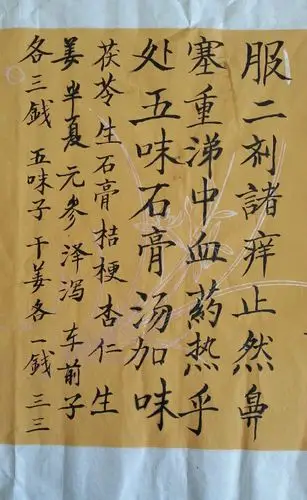 服二剂諸痒止然鼻
塞重涕中血药热乎
处五味石膏汤加味
茯苓生石膏桔梗杏仁生
姜半夏元参泽泻车前子
各三錢五味子干姜各一錢三三